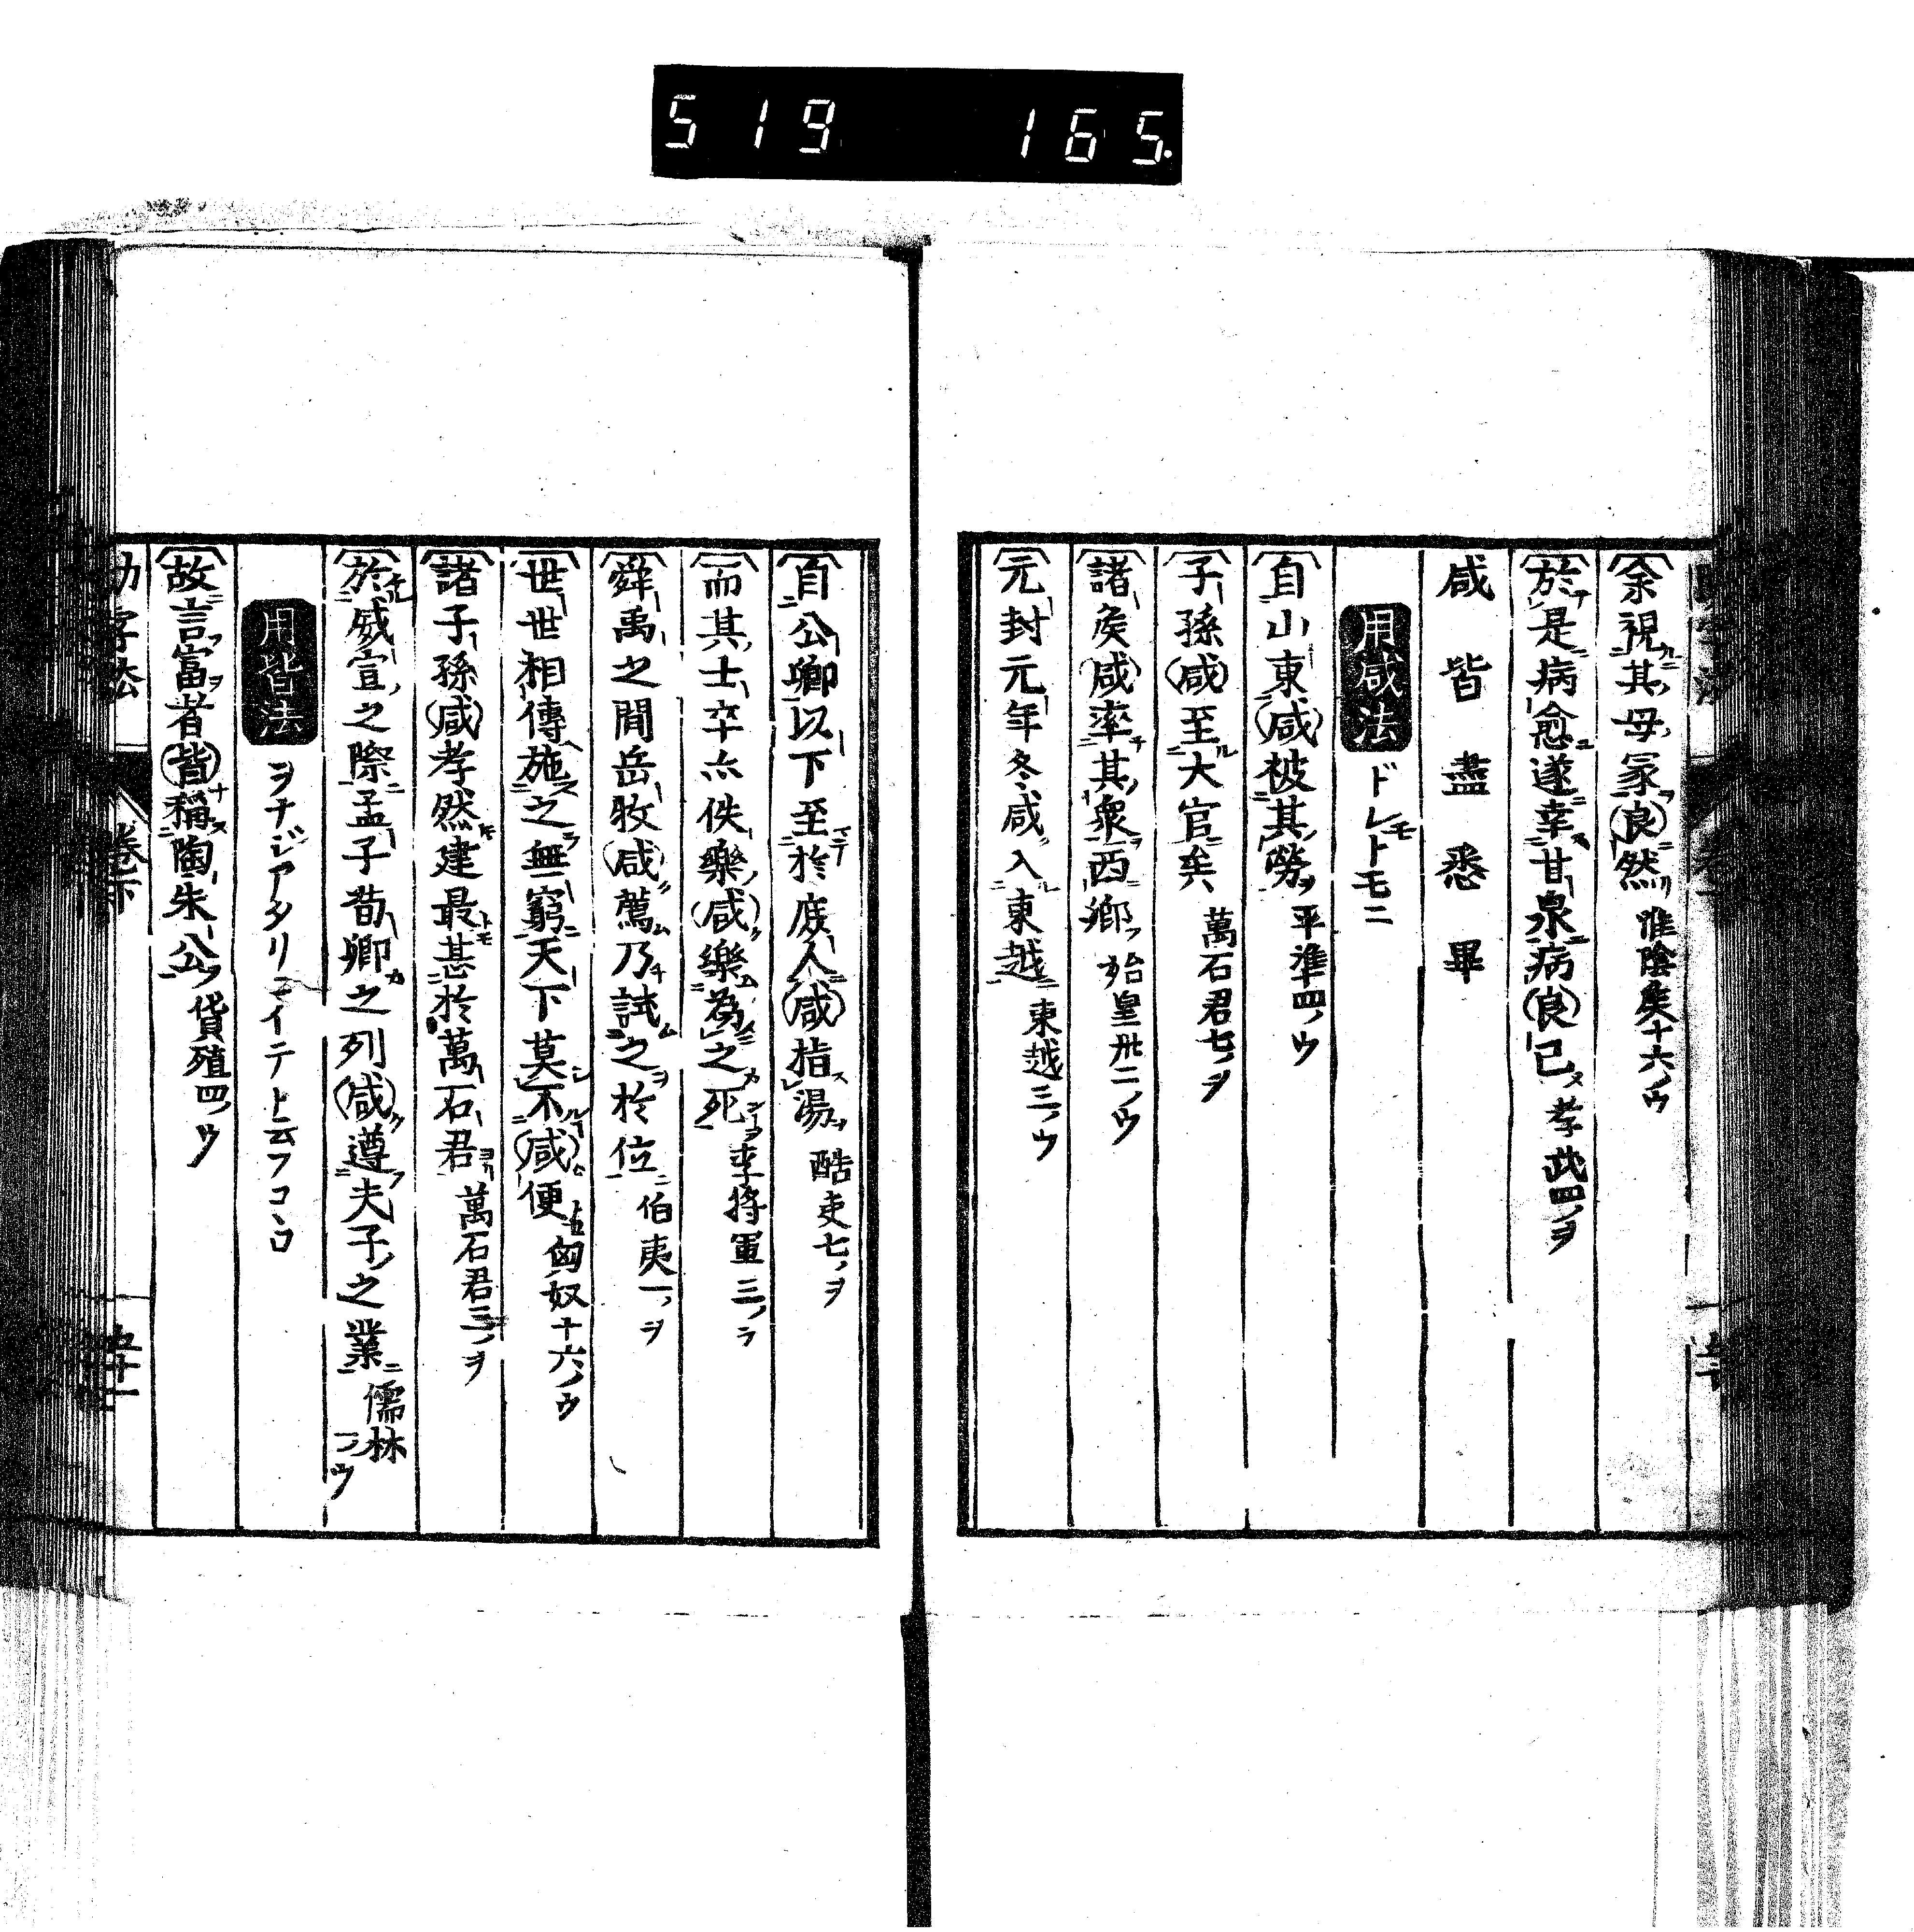 519 165.
余視其母冢良然 淮陰矦十六ノウ
於是病愈遂幸甘泉病良已 孝武四ノヲ
咸皆盡悉畢
用咸法 ドレモトモニ
自山東咸被其勞 平準四ノウ
子孫咸至大官矣 萬石君七ノヲ
諸矦咸率其衆西鄉 始皇卅二ノウ
元封元年冬咸入東越 東越三ノウ
自公卿以下至於庶人咸指湯 酷吏七ノヲ
而其士卒亦佚樂咸樂為之死 李将軍三ノヲ
舜禹之間岳牧咸薦乃試之於位 伯夷一ノヲ
世世相傳施之無窮天下莫不咸便 匈奴十六ノウ
諸子孫咸孝然建最甚於萬石君 萬石君三ノヲ
於威宣之際孟子荀卿之列咸遵夫子之業 儒林一ノウ
用皆法 ヲナジアタリマイテト云フコヽロ
故言富者皆稱陶朱公 貨殖四ノウ
助字法 卷下